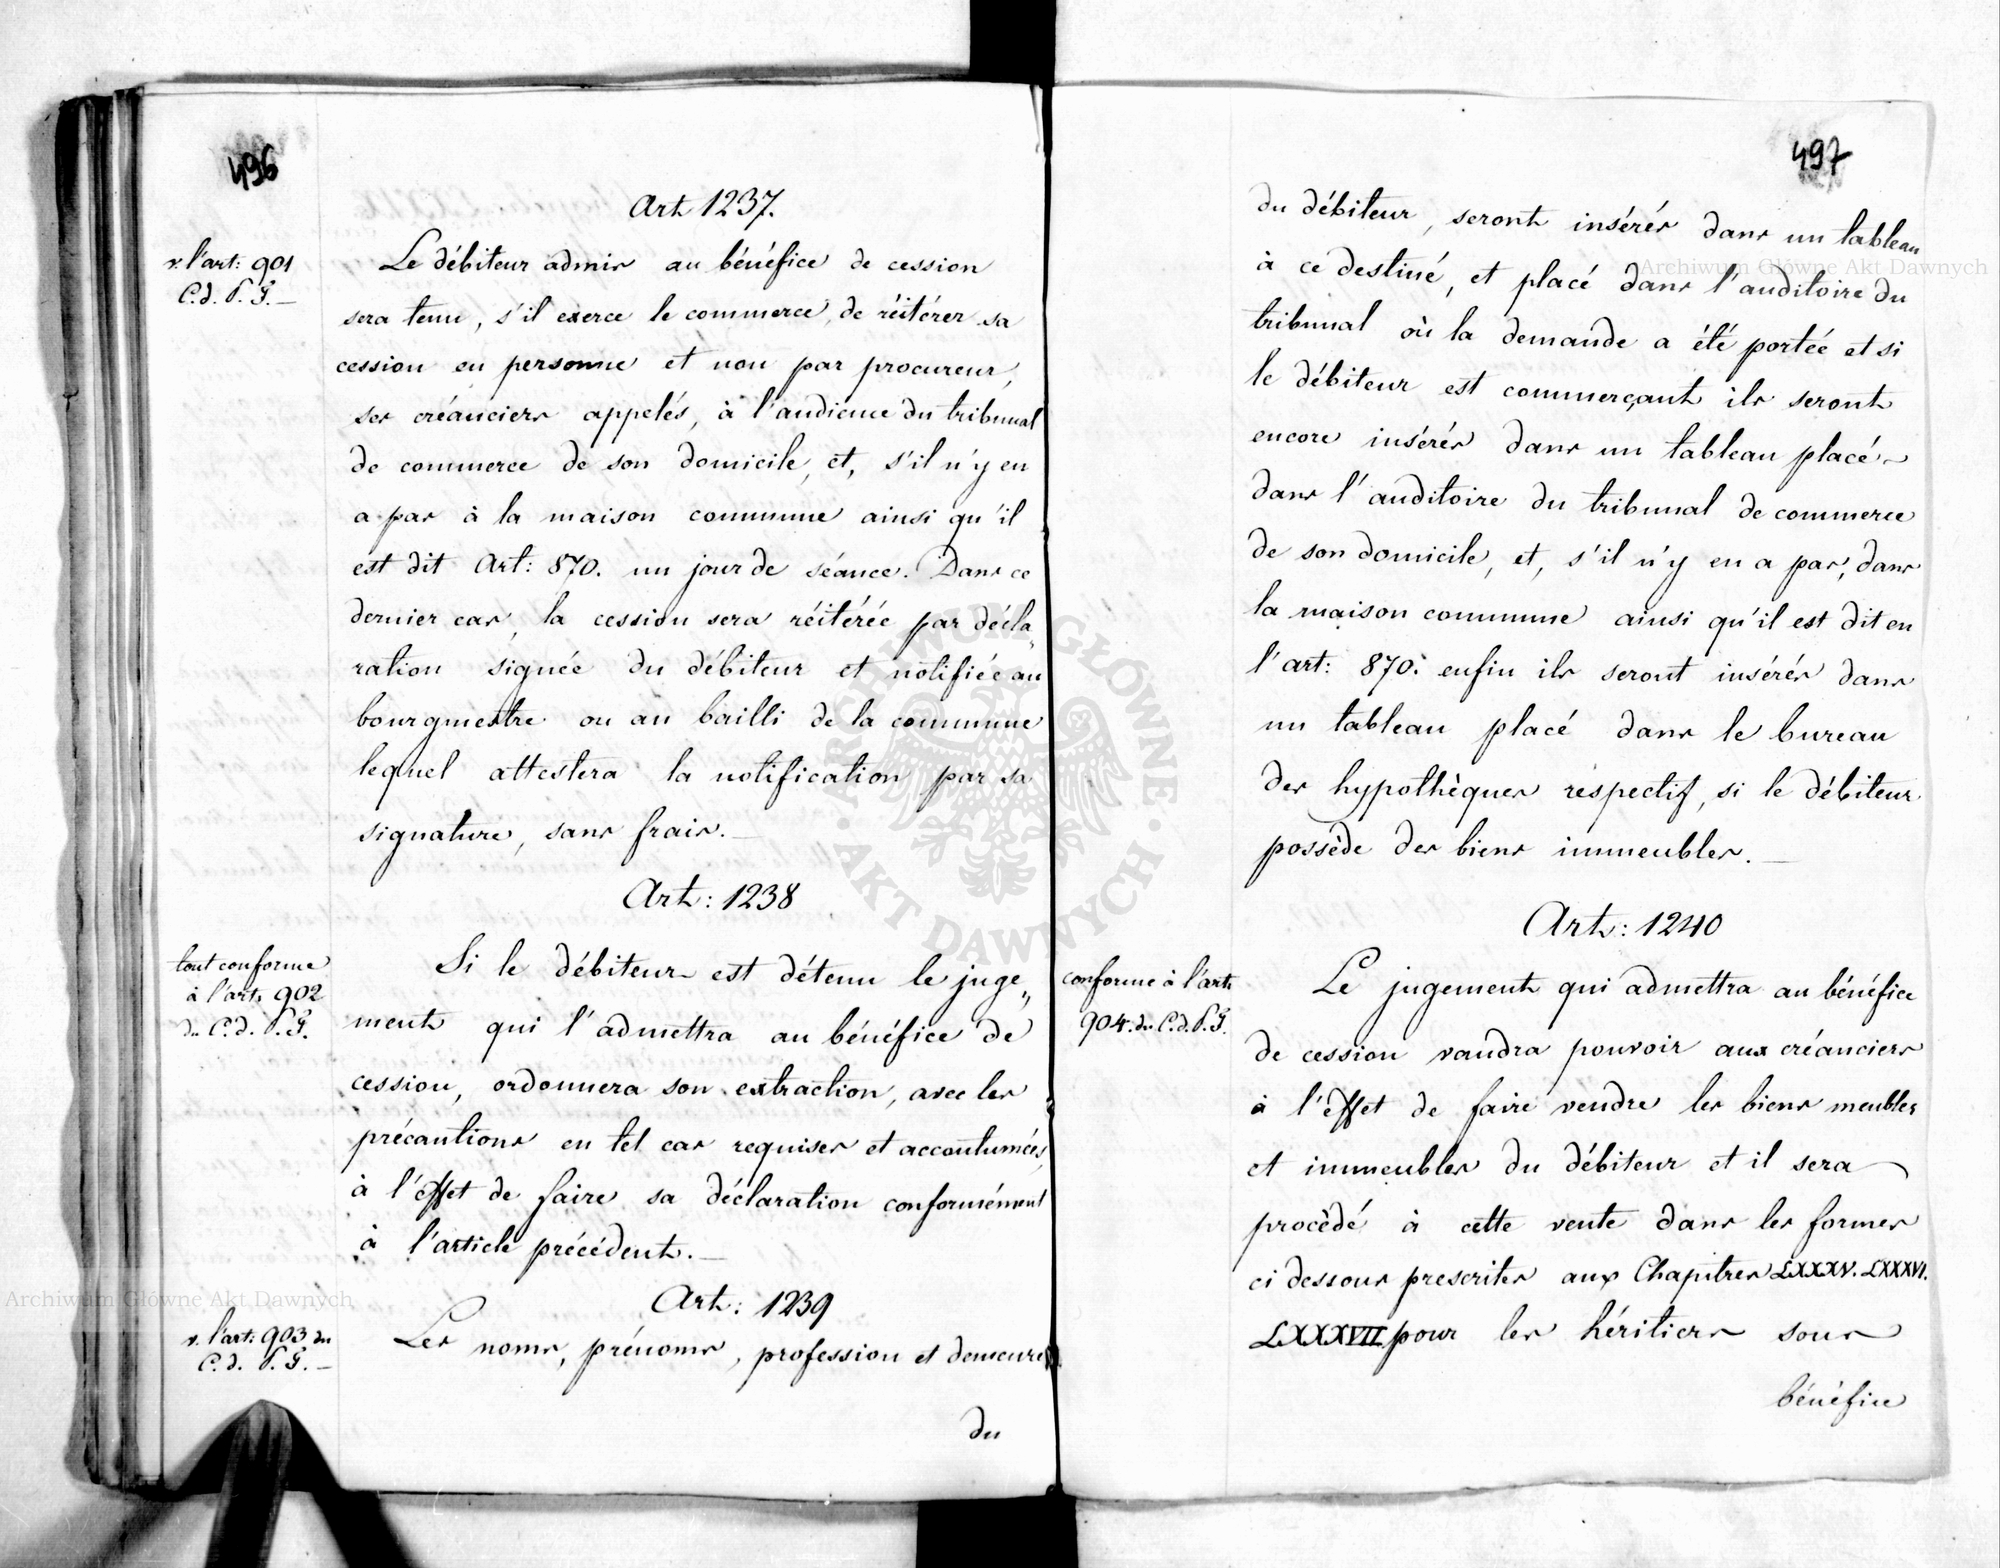 496
Art 1237.
v. l'art: 901
C. d. P. F. —
Le débiteur admis au bénéfice de cession
sera tenu, s'il exerce le commerce, de réitérer sa
cession en personne et non par procureur,
ses créanciers appelés, à l'audience du tribunal
de commerce de son domicile, et, s'il n'y en
a pas à la maison commune ainsi qu'il
est dit Art: 870. un jour de séance. Dans ce
dernier cas, la cession sera réitérée par décla„
ration signée du débiteur et notifiée au
bourgmestre ou au bailli de la commune
lequel attestera la notification par sa
signature, sans frais. —
Art: 1238
tout conforme
à l'art. 902
du C. d. P. F.
Si le débiteur est détenu le juge„
ment qui l'admettra au bénéfice de
cession, ordonnera son extraction, avec les
précautions en tel cas requises et accoutumées,
à l'effet de faire sa déclaration conformément
à l'article précédent. —
Art: 1239
v. l'art: 903 du
C. d. P. F. —
Les noms, prénoms, profession et demeure
du
497
du débiteur, seront insérés dans un tableau
à ce destiné, et placé dans l'auditoire du
tribunal où la demande a été portée et si
le débiteur est commerçant ils seront
encore insérés dans un tableau placé
dans l'auditoire du tribunal de commerce
de son domicile, et, s'il n'y en a pas, dans
la maison commune ainsi qu'il est dit en
l'art: 870. enfin ils seront insérés dans
un tableau placé dans le bureau
des hypothèques respectif, si le débiteur
possède des biens immeubles. —
Art: 1240
conforme à l'art
904. du C. d. P. F.
Le jugement qui admettra au bénéfice
de cession vaudra pouvoir aux créanciers
à l'effet de faire vendre les biens meubles
et immeubles du débiteur et il sera
procèdé à cette vente dans les formes
ci dessous prescrites aux Chapitres LXXXV. LXXXVI.
LXXXVII pour les héritiers sous
bénéfice
Archiwum Główne Akt Dawnych
Archiwum Główne Akt Dawnych
ARCHIWUM GŁÓWNE · AKT DAWNYCH ·